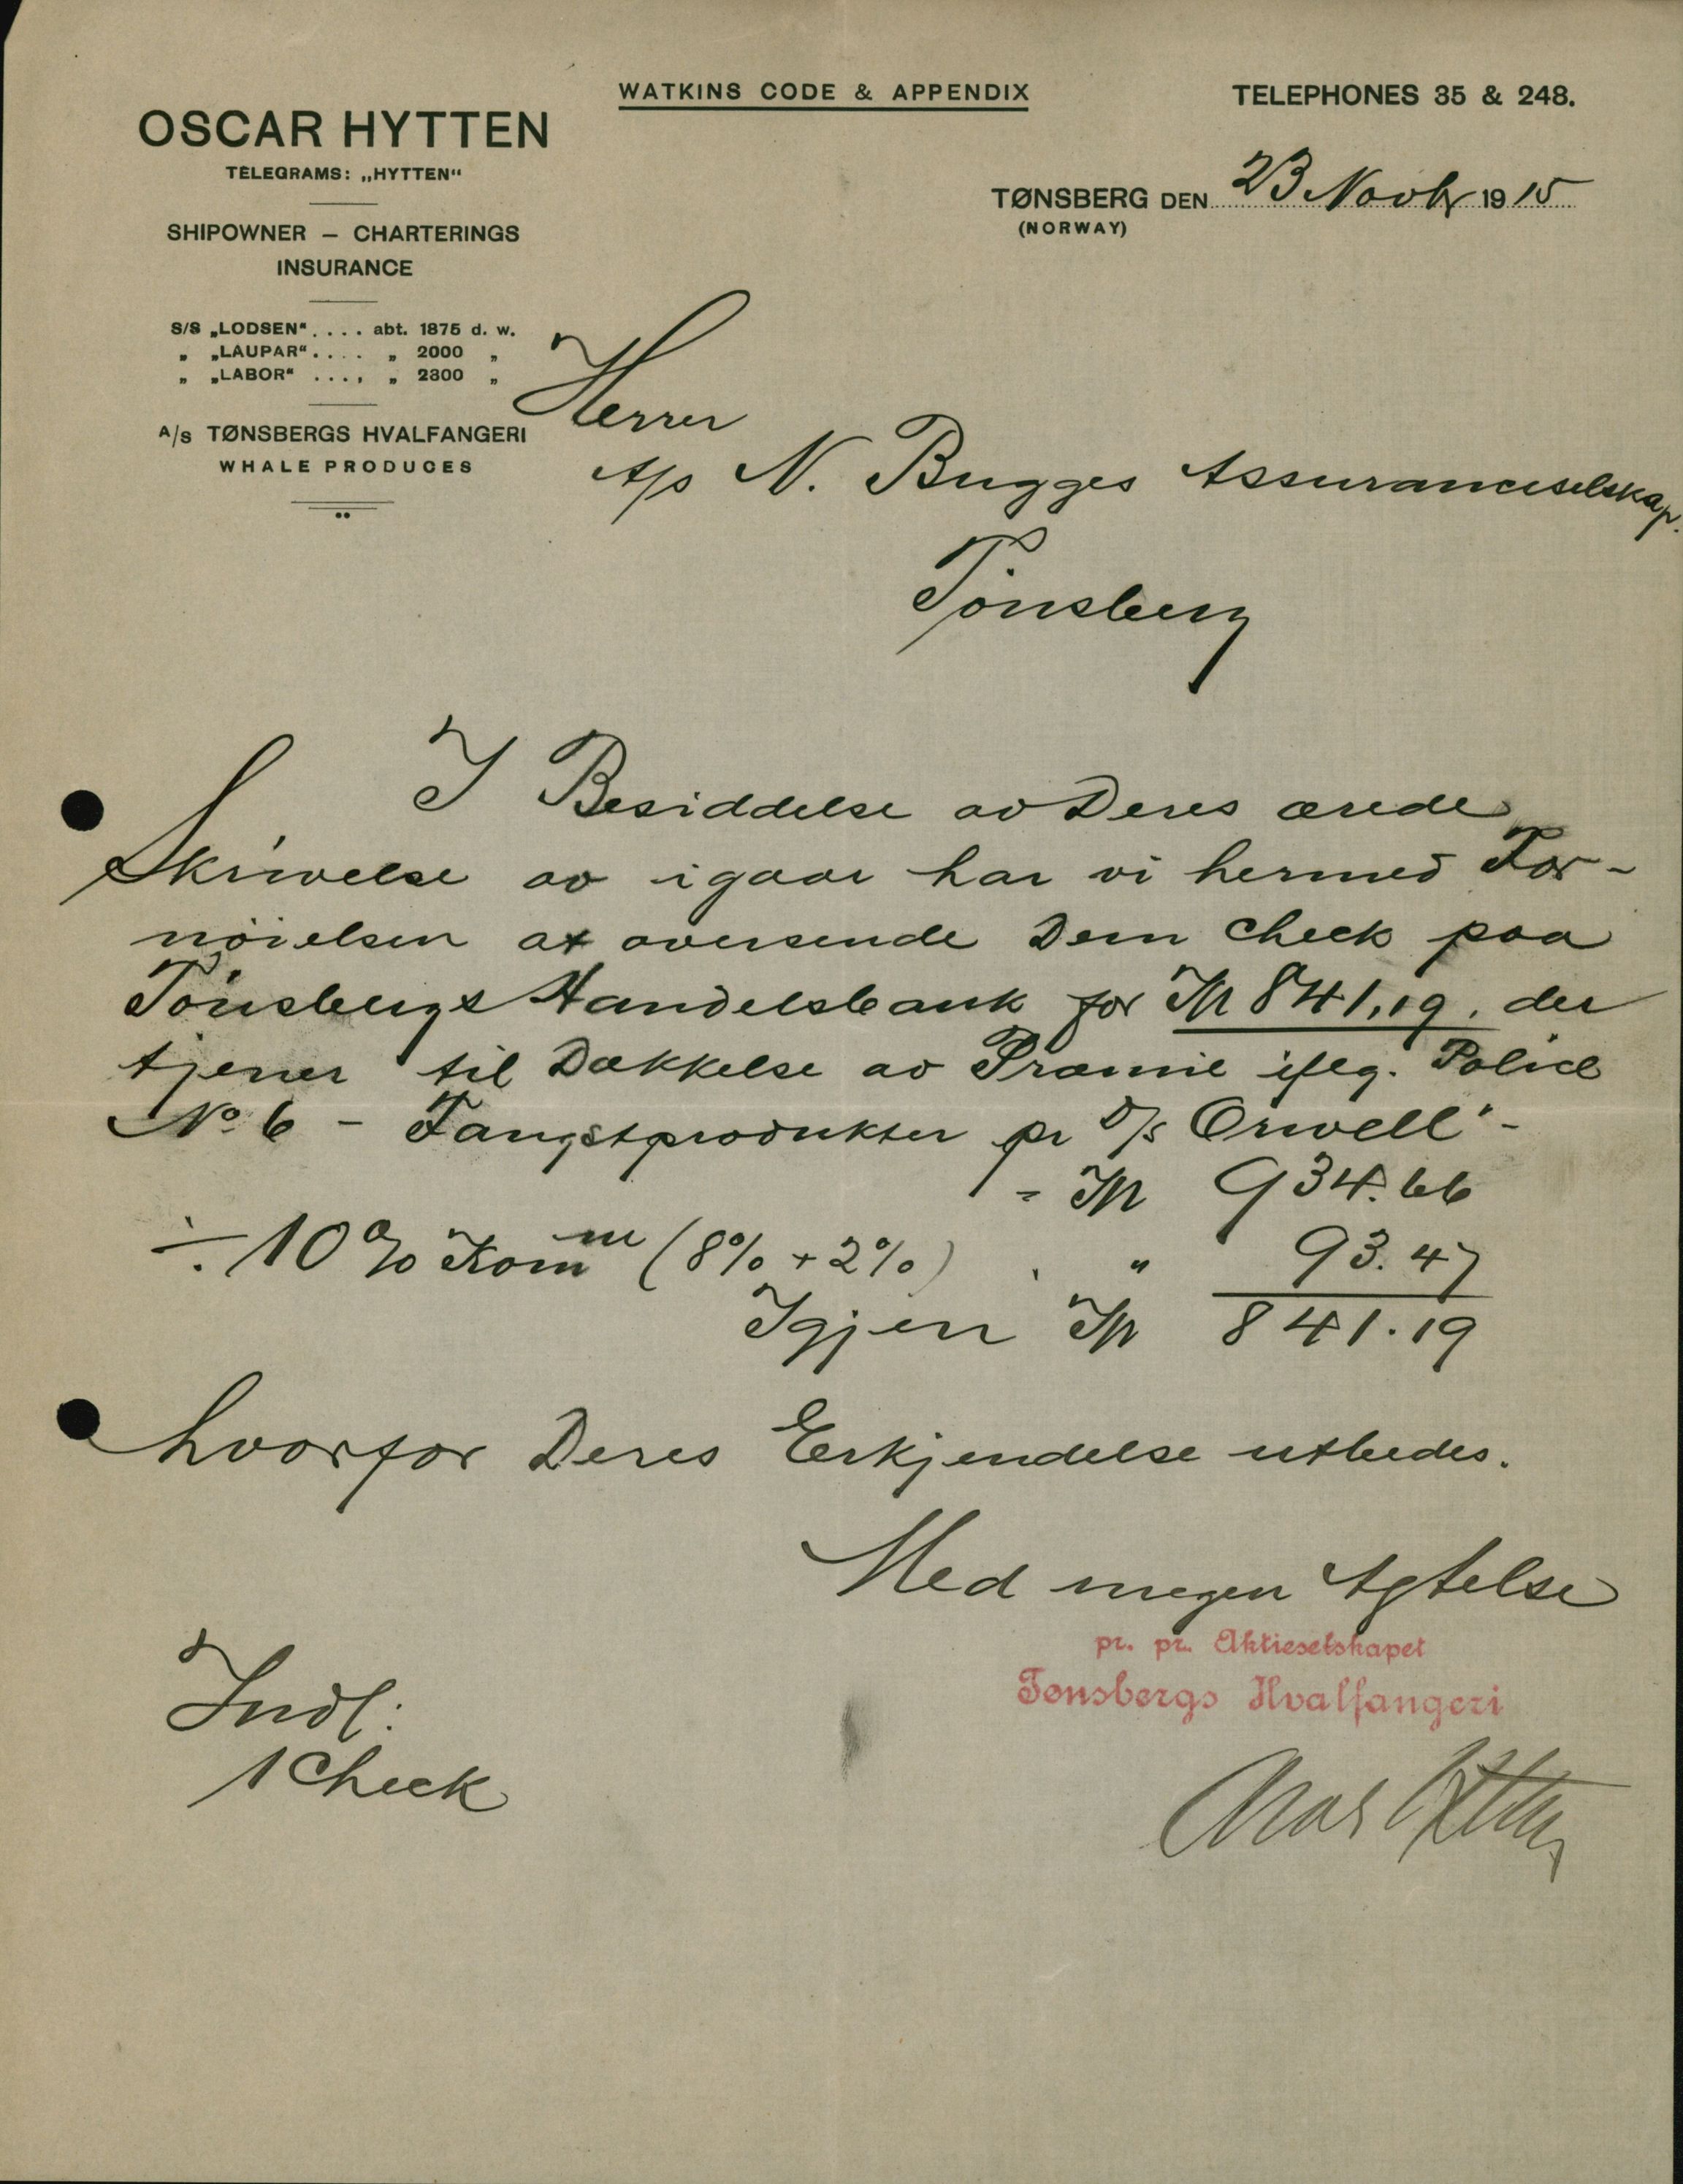 WATKINS CODE & APPENDIX
TELEPHONES 35 & 248.
OSCAR HYTTEN
TELEGRAMS: „HYTTEN“
TØNSBERG DEN 23 Novbr 1915
(NORWAY)
SHIPOWNER – CHARTERINGS
INSURANCE
S/S „LODSEN“.... abt. 1875 d. w.
„ „LAUPAR“.... „ 2000 „
„ „LABOR“ .... „ 2300 „
A/s TØNSBERGS HVALFANGERI
WHALE PRODUCES
Herrer
A/s N. Bugges Assuranceselskap.
Tönsberg
I Besiddelse av Deres ærede
Skrivelse av igaar har vi hermed For-
nöielsen at oversende Dem Check paa
Tönsbergs Handelsbank for Kr 841,19, der
tjener til Dækkelse av Præmie ifölg. Police
No. 6 - Fangstprodukter pr D/s Orwell" -
- Kr 934.66
÷ 10% Komm (8% + 2%) „ 93.47
Igjen Kr 841.19
hvorfor Deres Erkjendelse utbedes.
Med megen Agtelse
pr. pr. Aktieselskapet
Tønsbergs Hvalfangeri
Oscar Hytten
Indl:
1 Check